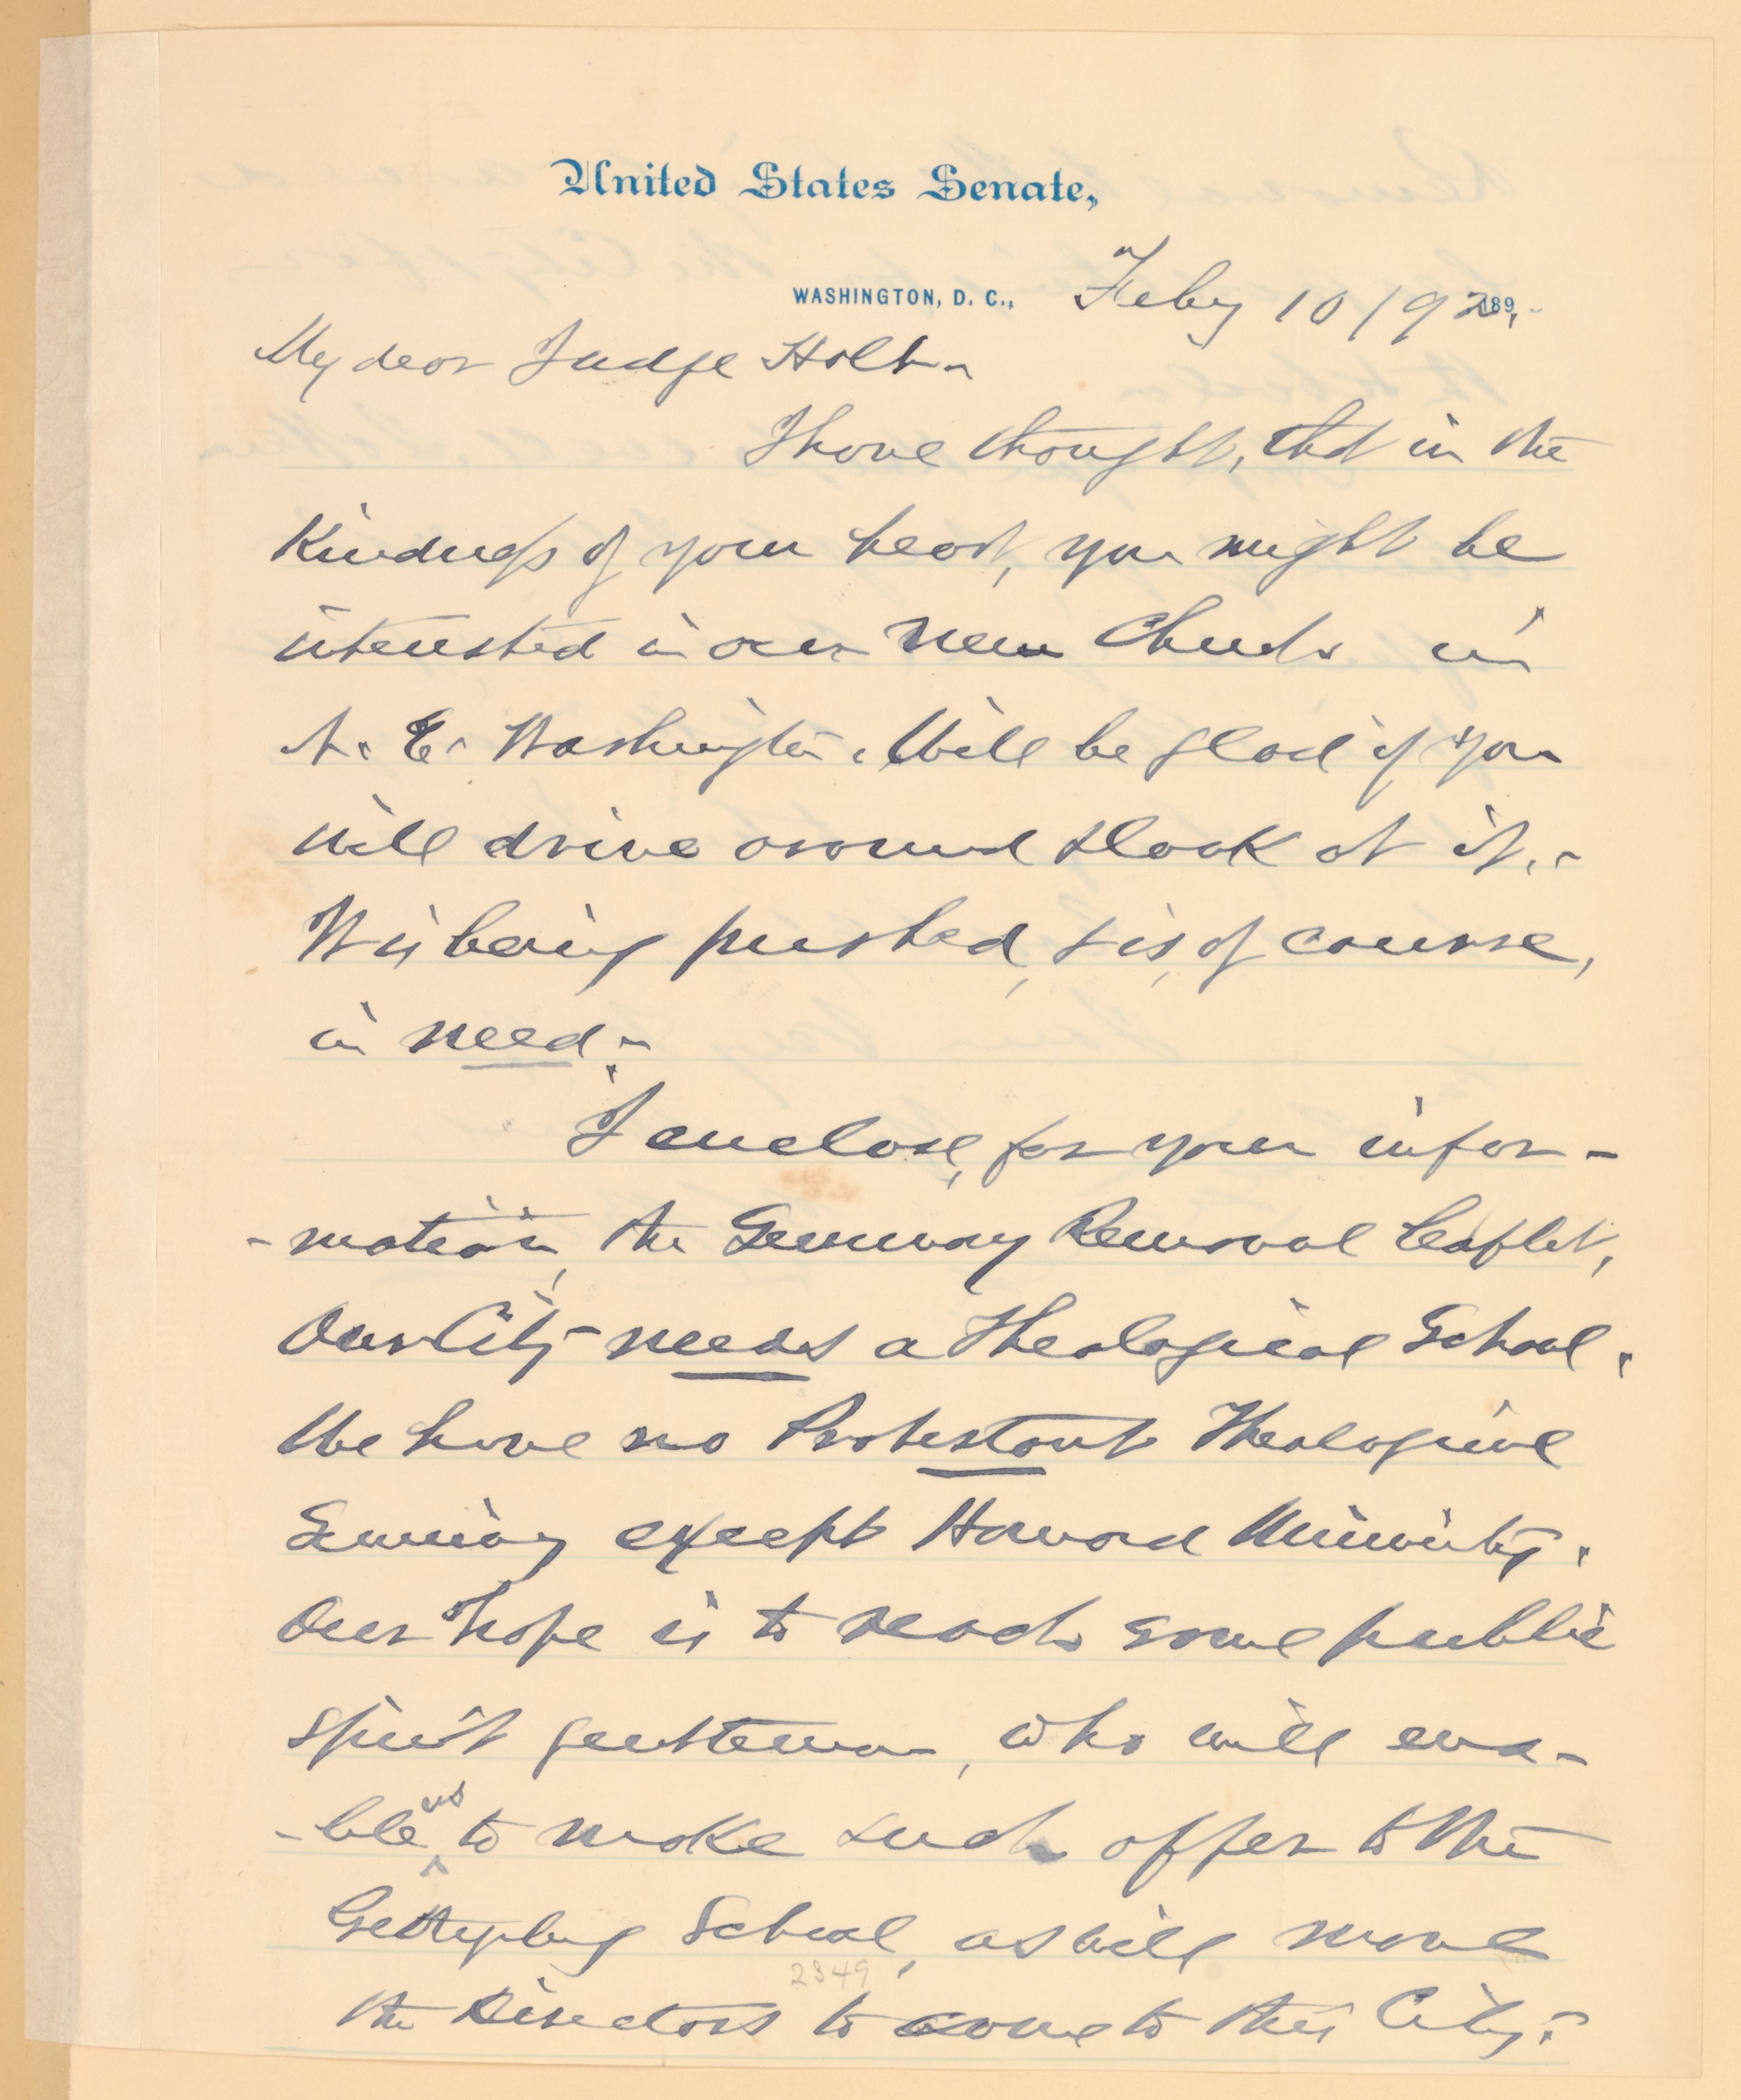 United States Senate,
WASHINGTON, D. C., Feby 10/92. 189
My dear Judge Holt -
I have thought, that in the
Kindness of your heart, you might be
interested in our new Church in
N. E. Washington. Will be glad if you
will drive around & look at it. -
It is being pushed, & is, of course,
in need. -
I enclose, for your infor-
-mation, the Seminary Removal leaflet,
Our City needs a Theological School.
We have no Protestant Theological
Seminary except Howard University.
Our hope is to reach some public
spirit gentleman, who will ena-
-ble us to make such offer to the
Gettysburg School, as will move
the Directors to come to this City. -
2349